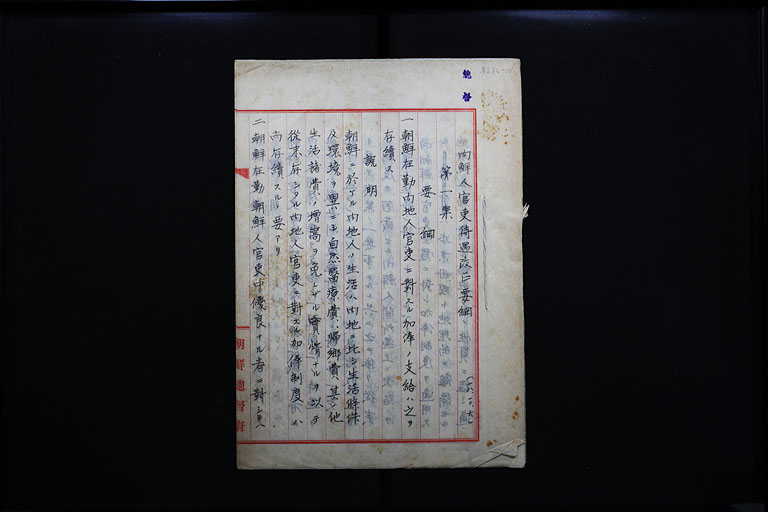 内鮮人官吏待遇改正要綱
第一案
要綱
一朝鮮在勤内地人官吏ニ對スル加俸ノ支給ハ之ヲ
存續ス
說明
朝鮮ニ於ケル内地人ノ生活ハ内地ニ比シ生活條件
及環境ヲ異ニシ自然醫療費、歸鄕費其ノ他
生活諸費ノ增嵩ヲ免レザル實情ナルヲ以テ
從來存シタル内地人官吏ニ對スル加俸制度ハ
尚存續スルノ要アリ
二朝鮮在勤朝鮮人官吏中優良ナル者ニ對シ
朝鮮總督府